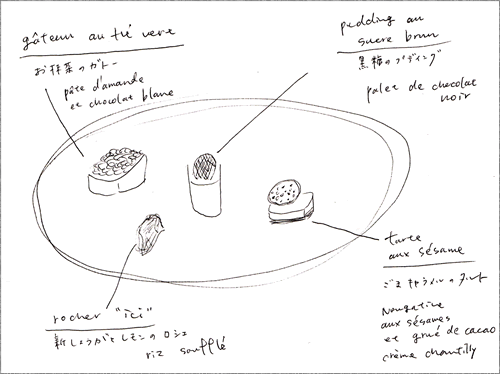 gâteau au té vere
お抹茶のガトー
pâte d'amande
et chocolat blanc
pudding au
sucre brun
黒糖のプディング
palet de chocolat
noir
tarte
aux sésame
ごまキャラメルのタルト
Nougatine
aux sésames
et grué de cacao
crème chantilly
rocher "ici"
新しょうがとレモンのロシェ
riz soufflé